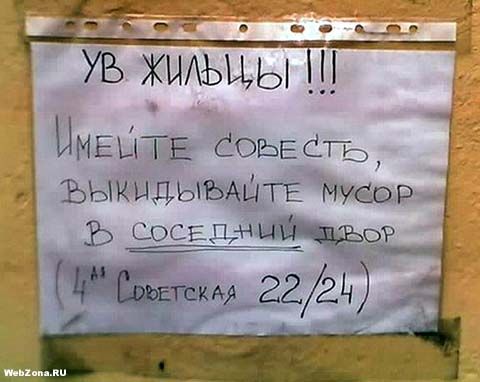 УВ ЖИЛЬЦЫ!!!
ИМЕЙТЕ СОВЕСТЬ,
ВЫКИДЫВАЙТЕ МУСОР
В СОСЕДНИЙ ДВОР
(4АЯ СОВЕТСКАЯ 22/24)
WebZona.RU